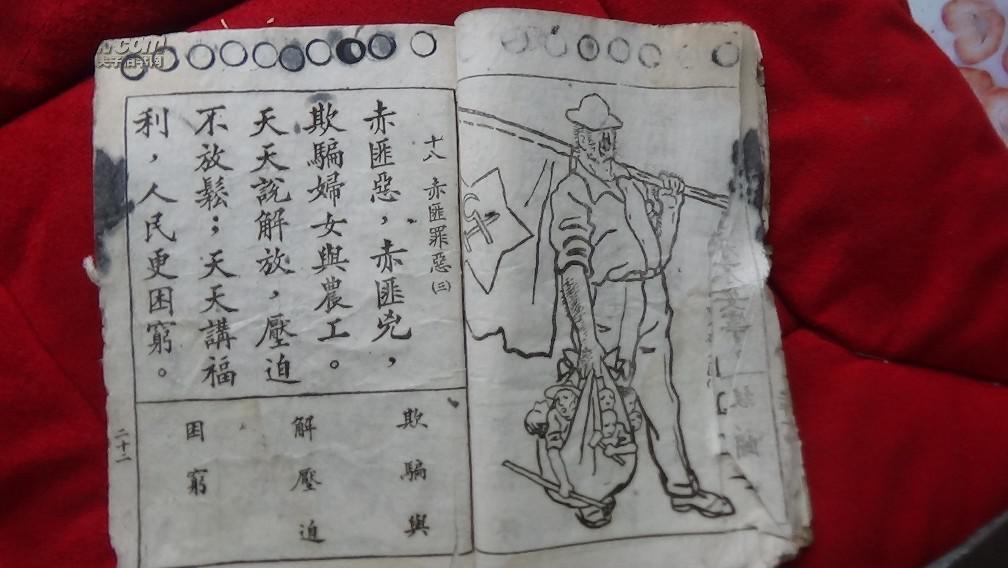 十八 赤匪罪惡(三)
赤匪惡，赤匪兇，
欺騙婦女與農工。
天天說解放，壓迫
不放鬆；天天講福
利，人民更困窮。
欺騙與
解壓迫
困窮
二十二
.com